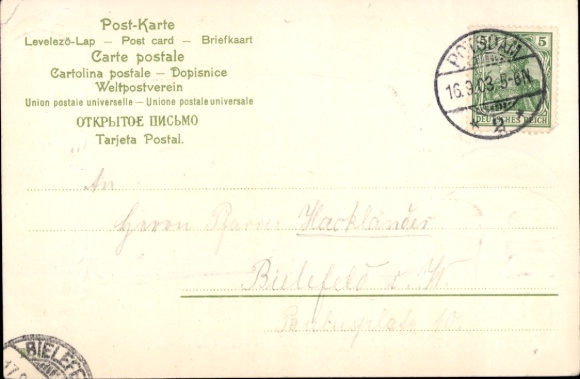 Post-Karte
Levelező-Lap – Post card – Briefkaart
Carte postale
Cartolina postale – Dopisnice
Weltpostverein
Union postale universelle – Unione postale universale
ОТКРЫТОЕ ПИСЬМО
Tarjeta Postal.
5 5
POTSDAM
16.9.03.5-6N.
* 2 *
DEUTSCHES REICH
An
Herrn Pfarrer Hackländer
Bielefeld i. W.
Paulusplatz
BIELEFE
17.9